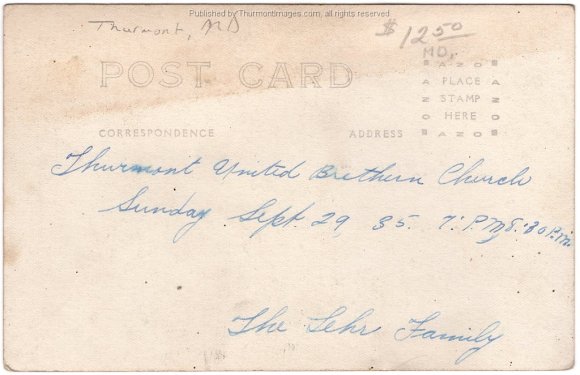 Published by ThurmontImages.com, all rights reserved
Thurmont, MD
$12.50
MD,
POST CARD
AZOS
PLACE
STAMP
HERE
AZOS
CORRESPONDENCE
ADDRESS
Thurmont United Brethern Church
Sunday Sept. 29 35. 7:P.M
The Lehr Family